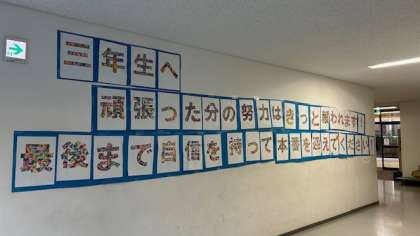 三年生へ
頑張った分の努力はきっと報われます!
最後まで自信を持って本番を迎えてください!